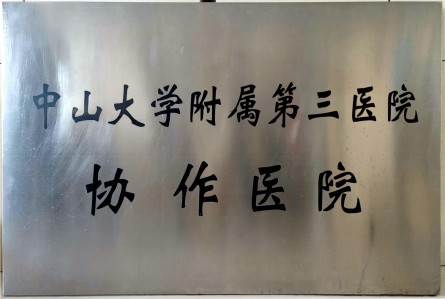 中山大学附属第三医院
协作医院